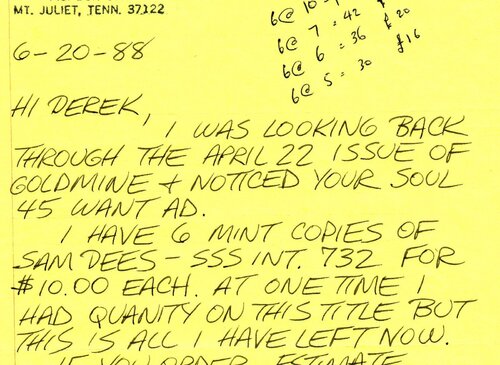 MT. JULIET, TENN. 37122
6@ 10
6@ 7 = 42 £20
6@ 6 = 36 £16
6@ 5 = 30
6-20-88
HI DEREK,
I WAS LOOKING BACK
THROUGH THE APRIL 22 ISSUE OF
GOLDMINE + NOTICED YOUR SOUL
45 WANT AD.
I HAVE 6 MINT COPIES OF
SAM DEES - SSS INT. 732 FOR
$10.00 EACH. AT ONE TIME I
HAD QUANITY ON THIS TITLE BUT
THIS IS ALL I HAVE LEFT NOW.
IF YOU ORDER, ESTIMATE